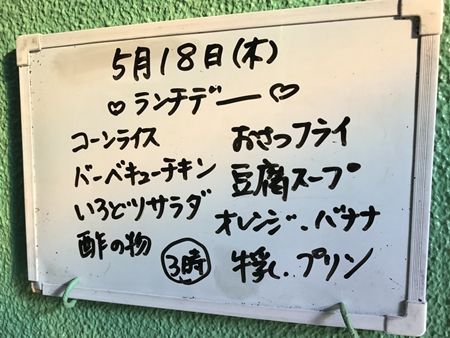 5月18日(木)
♡ランチデー♡
コーンライス
バーベキューチキン
いろどりサラダ
酢の物
おさつフライ
豆腐スープ
オレンジ、バナナ
3時 牛乳、プリン